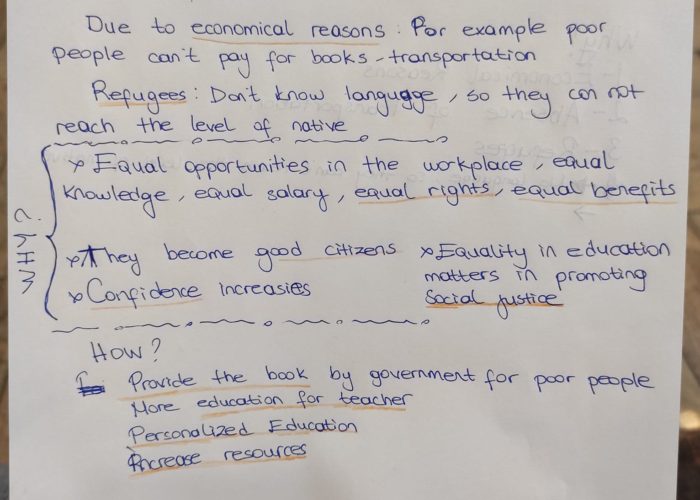 Due to economical reasons : For example poor
people can't pay for books - transportation
Refugees : Don't know language, so they can not
reach the level of native
WHY?
x Equal opportunities in the workplace, equal
knowledge, equal salary, equal rights, equal benefits
x They become good citizens
x Confidence increasies
x Equality in education
matters in promoting
social justice
How?
Provide the book by government for poor people
More education for teacher
Personalized Education
Increase resources